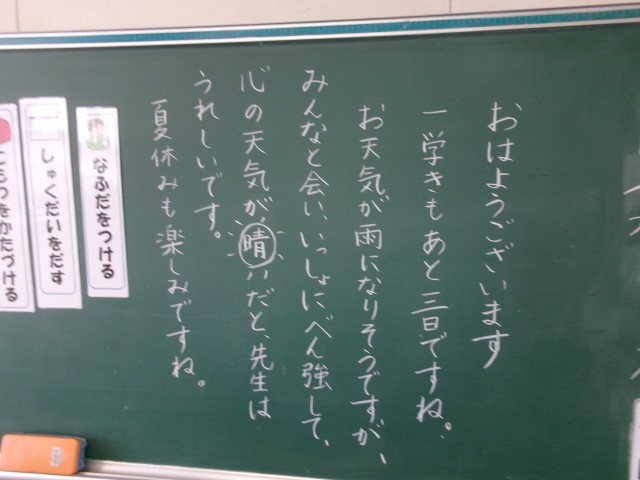 おはようございます
一学きもあと三日ですね。
お天気が雨になりそうですが、
みんなと会い、いっしょにべん強して、
心の天気が晴ハだと、先生は
うれしいです。
夏休みも楽しみですね。
なふだをつける
しゅくだいをだす
にもつをかたづける